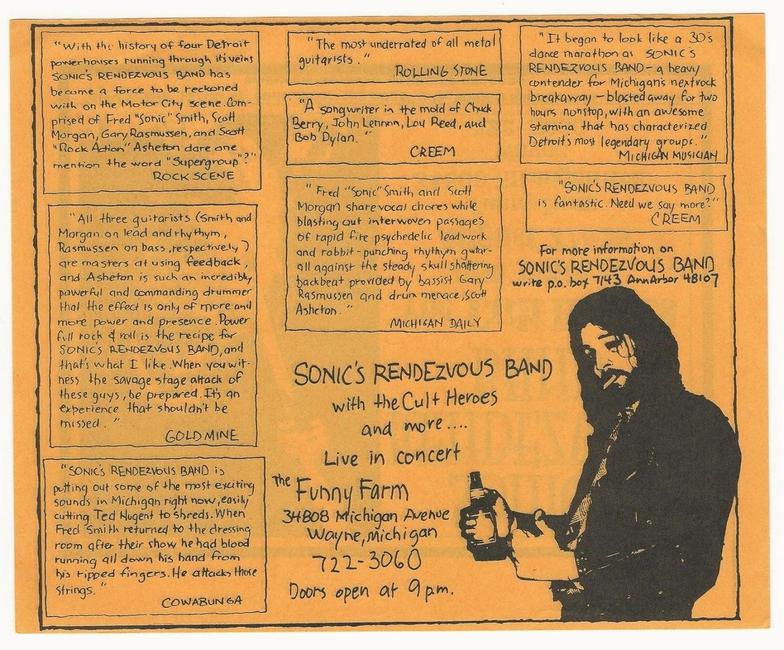 "With the history of four Detroit
powerhouses running through its veins
SONIC'S RENDEZVOUS BAND has
become a force to be reckoned
with on the Motor City scene. Com-
prised of Fred "Sonic" Smith, Scott
Morgan, Gary Rasmussen, and Scott
"Rock Action" Asheton dare one
mention the word "Supergroup"?"
ROCK SCENE
"All three guitarists (Smith and
Morgan on lead and rhythm,
Rasmussen on bass, respectively,)
are masters at using feedback,
and Asheton is such an incredibly
powerful and commanding drummer
that the effect is only of more and
more power and presence. Power
full rock & roll is the recipe for
SONIC'S RENDEZVOUS BAND, and
that's what I like. When you wit-
ness the savage stage attack of
these guys, be prepared. It's an
experience that shouldn't be
missed."
GOLDMINE
"SONIC'S RENDEZVOUS BAND is
putting out some of the most exciting
sounds in Michigan right now, easily
cutting Ted Nugent to shreds. When
Fred Smith returned to the dressing
room after their show he had blood
running all down his hand from
his ripped fingers. He attacks those
strings."
COWABUNGA
"The most underrated of all metal
guitarists."
ROLLING STONE
"A songwriter in the mold of Chuck
Berry, John Lennon, Lou Reed, and
Bob Dylan."
CREEM
"Fred "Sonic" Smith and Scott
Morgan share vocal chores while
blasting out interwoven passages
of rapid fire psychedelic leadwork
and rabbit-punching rhythm guitar-
all against the steady skull shattering
backbeat provided by bassist Gary
Rasmussen and drum menace, Scott
Asheton."
MICHIGAN DAILY
"It began to look like a 30's
dance marathon as SONIC'S
RENDEZVOUS BAND - a heavy
contender for Michigan's nextrock
breakaway - blasted away for two
hours nonstop, with an awesome
stamina that has characterized
Detroit's most legendary groups."
MICHIGAN MUSICIAN
"SONIC'S RENDEZVOUS BAND
is fantastic. Need we say more?"
CREEM
For more information on
SONIC'S RENDEZVOUS BAND
write p.o. box 7143 Ann Arbor 48107
SONIC'S RENDEZVOUS BAND
with the Cult Heroes
and more....
Live in concert
The Funny Farm
34808 Michigan Avenue
Wayne, michigan
722-3060
Doors open at 9 pm.